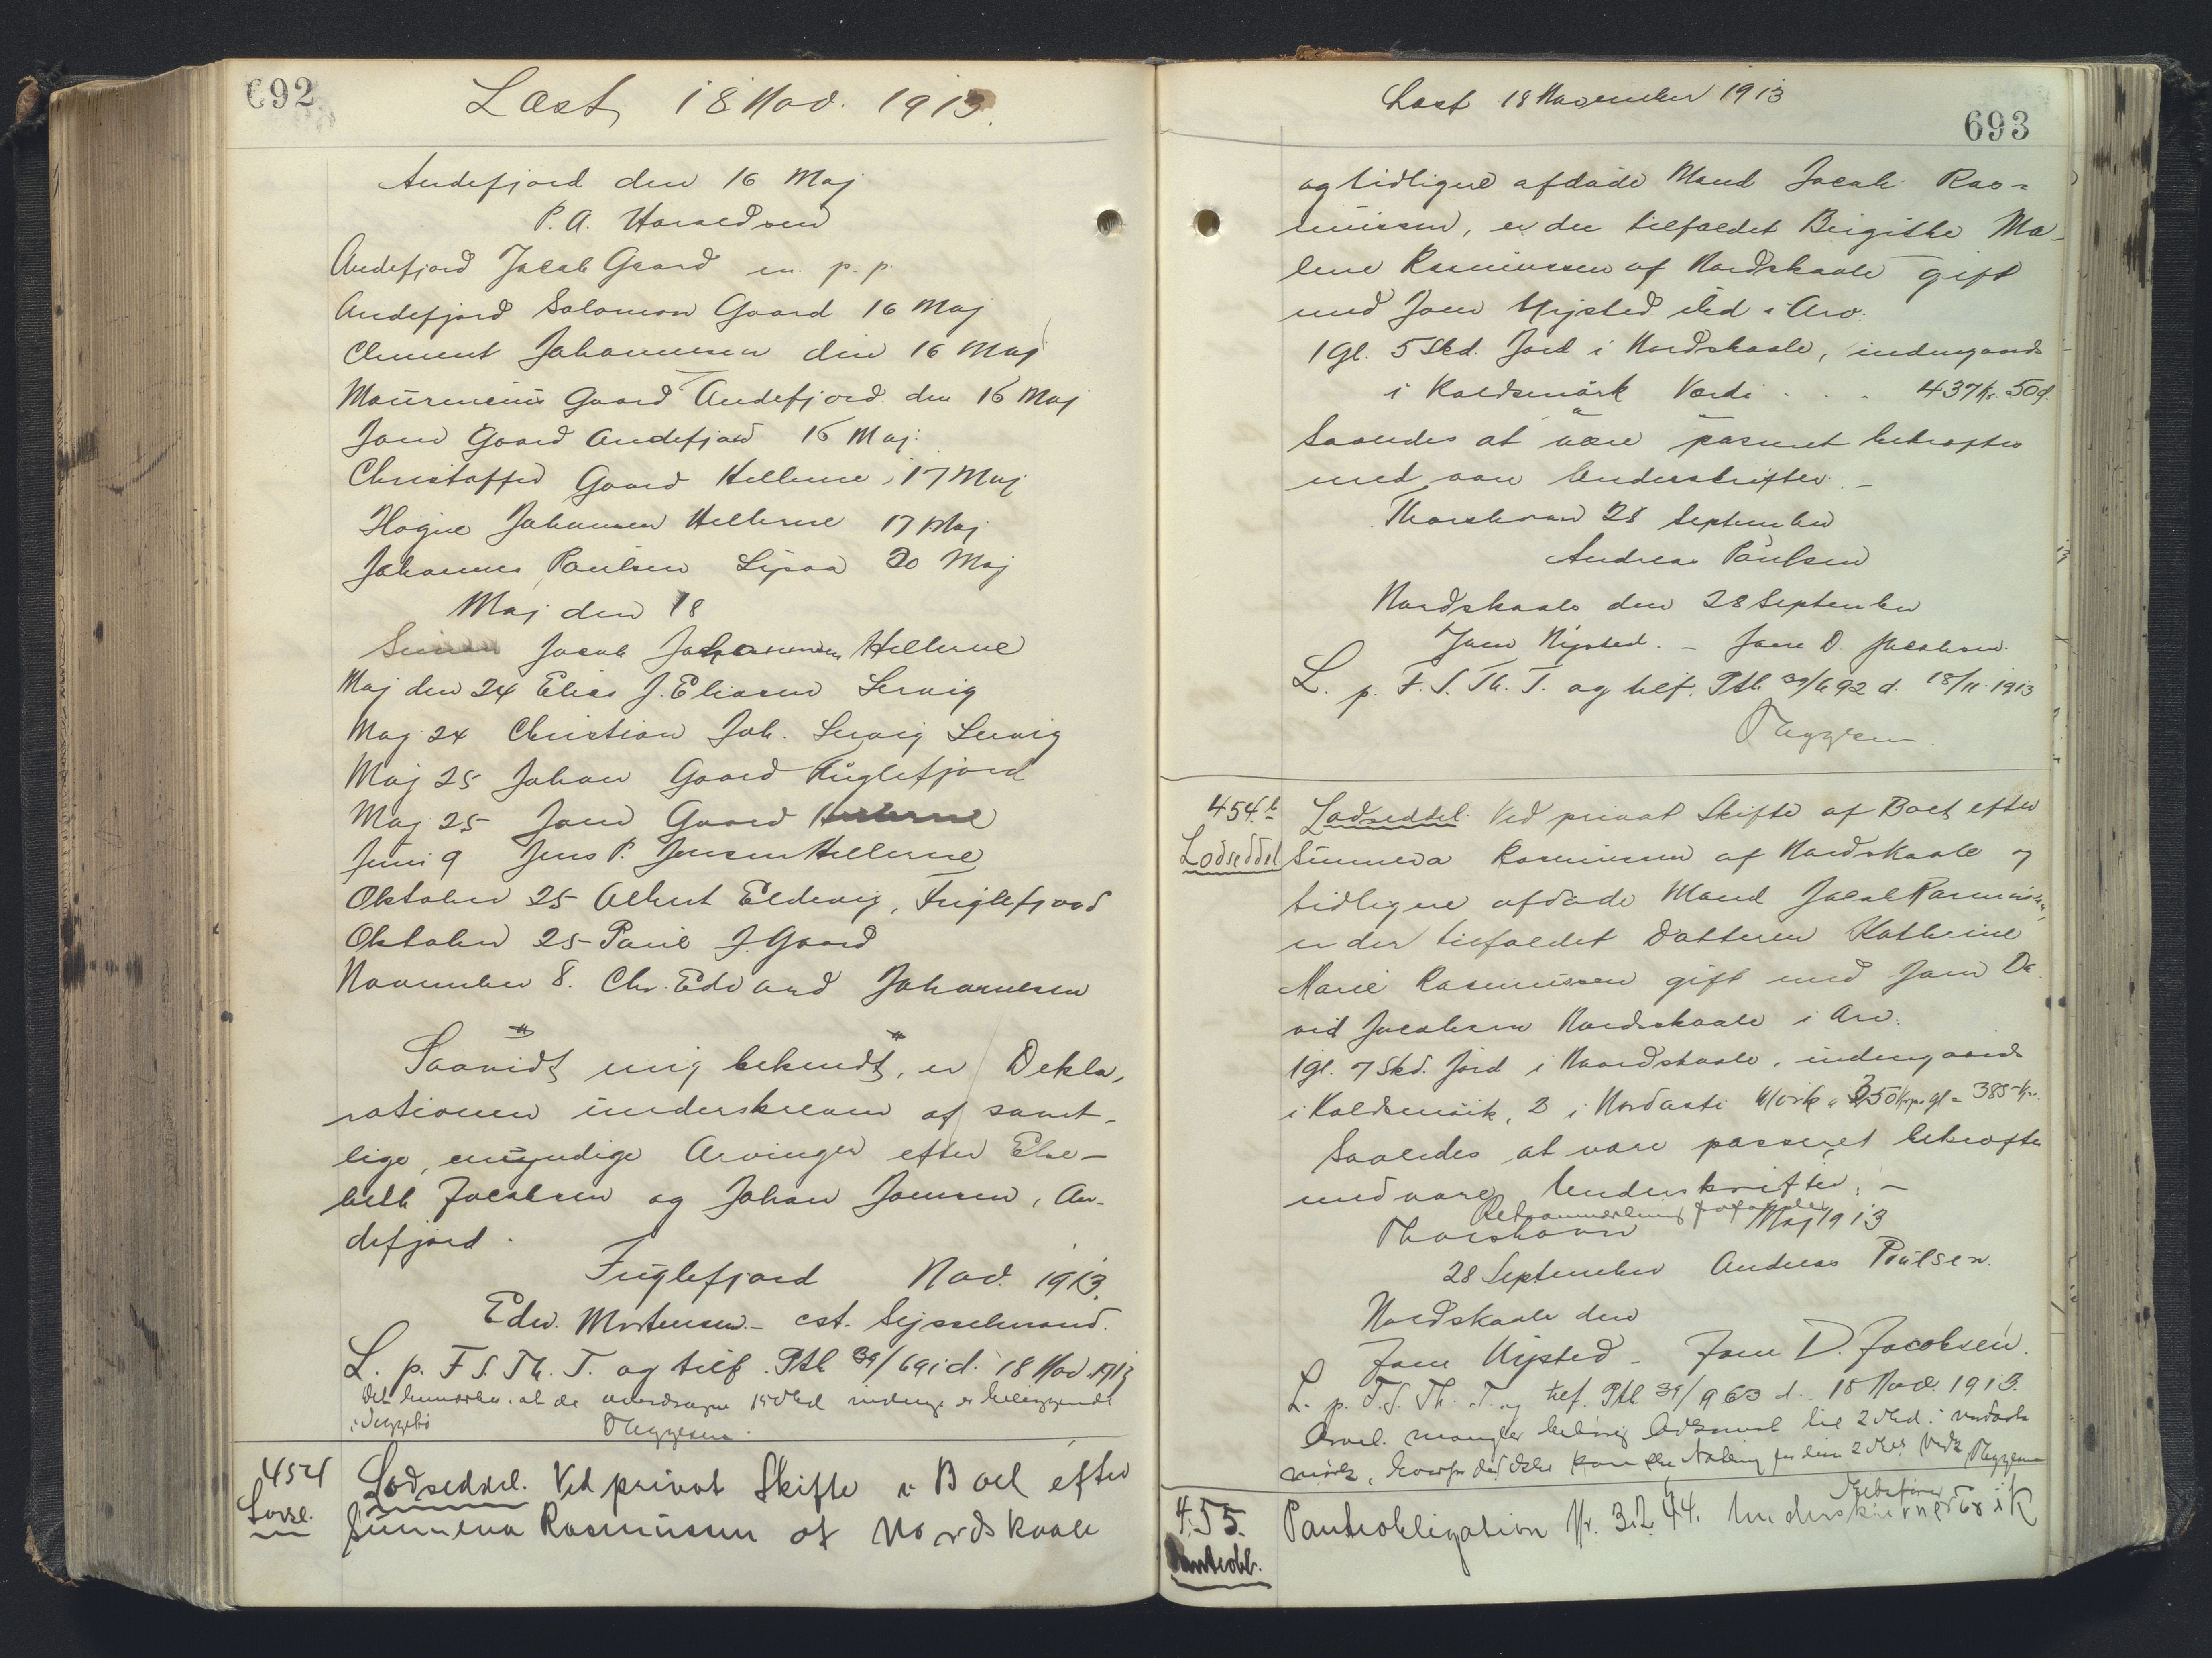 692
Læst, 18 Nov. 1913.
Andefjord den 16 Maj
P. A. Haraldsen
Andefjord Jacob Gaard m. p. p.
Andefjord Salomon Gaard 16 Maj
Clement Johannesen den 16 Maj
Mourencius Gaard Andefjord den 16 Maj
Joen Gaard Andefjord 16 Maj.
Christoffer Gaard Hellerne, 17 Maj
Høgne Johansen Hellerne 17 Maj
Johannes Poulsen Lipaa 20 Maj
Maj den 18
Jacob Johannesen Hellerne
Maj den 24 Elias J. Eliasen Lervig
Maj 24 Christian Joh. Lervig Lervig
Maj 25 Johan Gaard Fuglefjord
Maj 25 Joen Gaard
Juni 9 Jens P. Jensen Hellerne
Oktober 25 Albert Eldevig, Fuglefjord
Oktober 25 Poul J. Gaard
November 8. Chr. Edvard Johannesen
Saavidt mig bekendt, er Dekla-
rationen underskreven af samt-
lige, myndige Arvinger efter Else-
beth Jacobsen og Johan Joensen, An-
defjord.
Fuglefjord Nov. 1913.
Edw. Mortensen. - cst. Sysselmand.
L. p. F. S. Th. T. og tilf. Ptb 39/691 d. 18 Nov. 1913
Det bemærkes, at de overdragne 15 Skd indmg. er beliggende
454
Lodseddel. Ved privat Skifte i Boet efter
Sunneva Rasmussen af Nordskaale
Læst 18 November 1913
693
og tidligere afdøde Mand Jacob Ras-
mussen, er der tilfaldet Birgithe Ma-
lene Rasmussen af Nordskaale gift
med Joen Nysted ibd i Arv:
1 Gl. 5 Skd. Jord i Nordskaale, indengaards
i Koldsmørk Værdi . . . 437 Kr. 50 Ø.
Saaledes at være passeret bekræftes
med vore Underskrifter. -
Thorshavn 28 September
Andreas Poulsen
Nordskaale den 28 September
Joen Nysted. - Joen D. Jacobsen.
L. p. F. S. Th. T. og tilf. Ptb 39/692 d. 18/11. 1913
454 b
Lodseddel
Lodseddel. Ved privat Skifte af Boet efter
Sunneva Rasmussen af Nordskaale og
tidligere afdøde Mand Jacob Rasmussen,
er der tilfaldet Datteren Kathrine
Marie Rasmussen gift med Joen Da-
vid Jacobsen Nordskaale i Arv:
1 Gl. 7 Skd. Jord i Nordskaale, indengaards
i Koldsmørk, 2 i Nordasti Mørk a 350 Kr pr. gl = 385 Kr.
Saaledes at være passeret bekræftes
med vore Underskrifter: -
Thorshavn Maj 1913
28 September Andreas Poulsen.
Nordskaale den
Joen Nysted - Joen D. Jacobsen.
L. p. F. S. Th. T. og tilf. Ptb. 39/963 d. 18 Nov. 1913.
mangler behørig Adkomst til 2 Skd. i Nordasti
455.
Panteobl.
Panteobligation Nr. 3244. Underskrevne